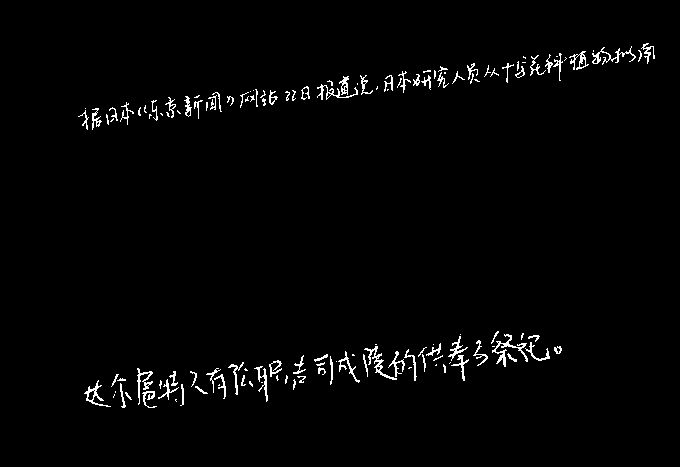 据日本《东京新闻》网站22日报道说,日本研究人员从十字花科植物拟南
达尔扈特人有位职,专司成陵的供奉与祭祀。